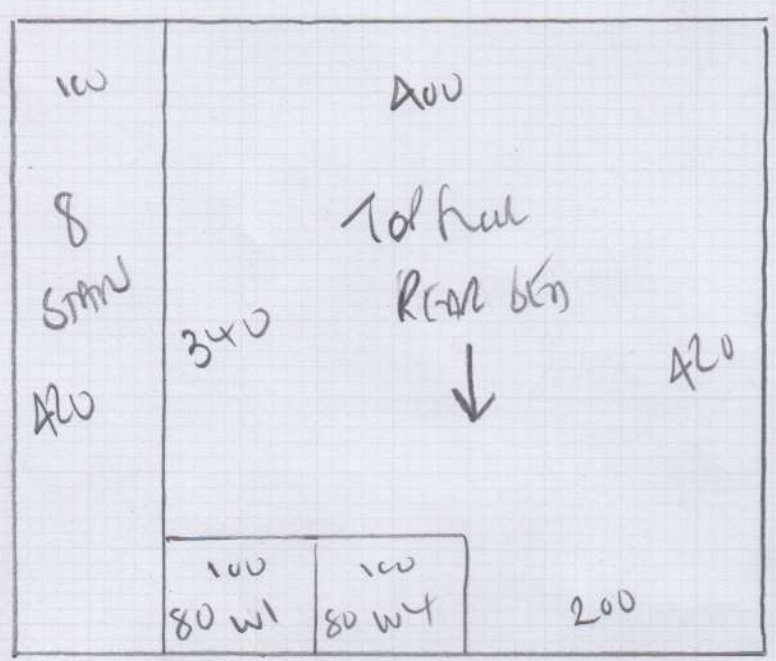 100
400
8
STAIR
420
Top floor
REAR BED
340
420
100
80 W1
100
80 W4
200